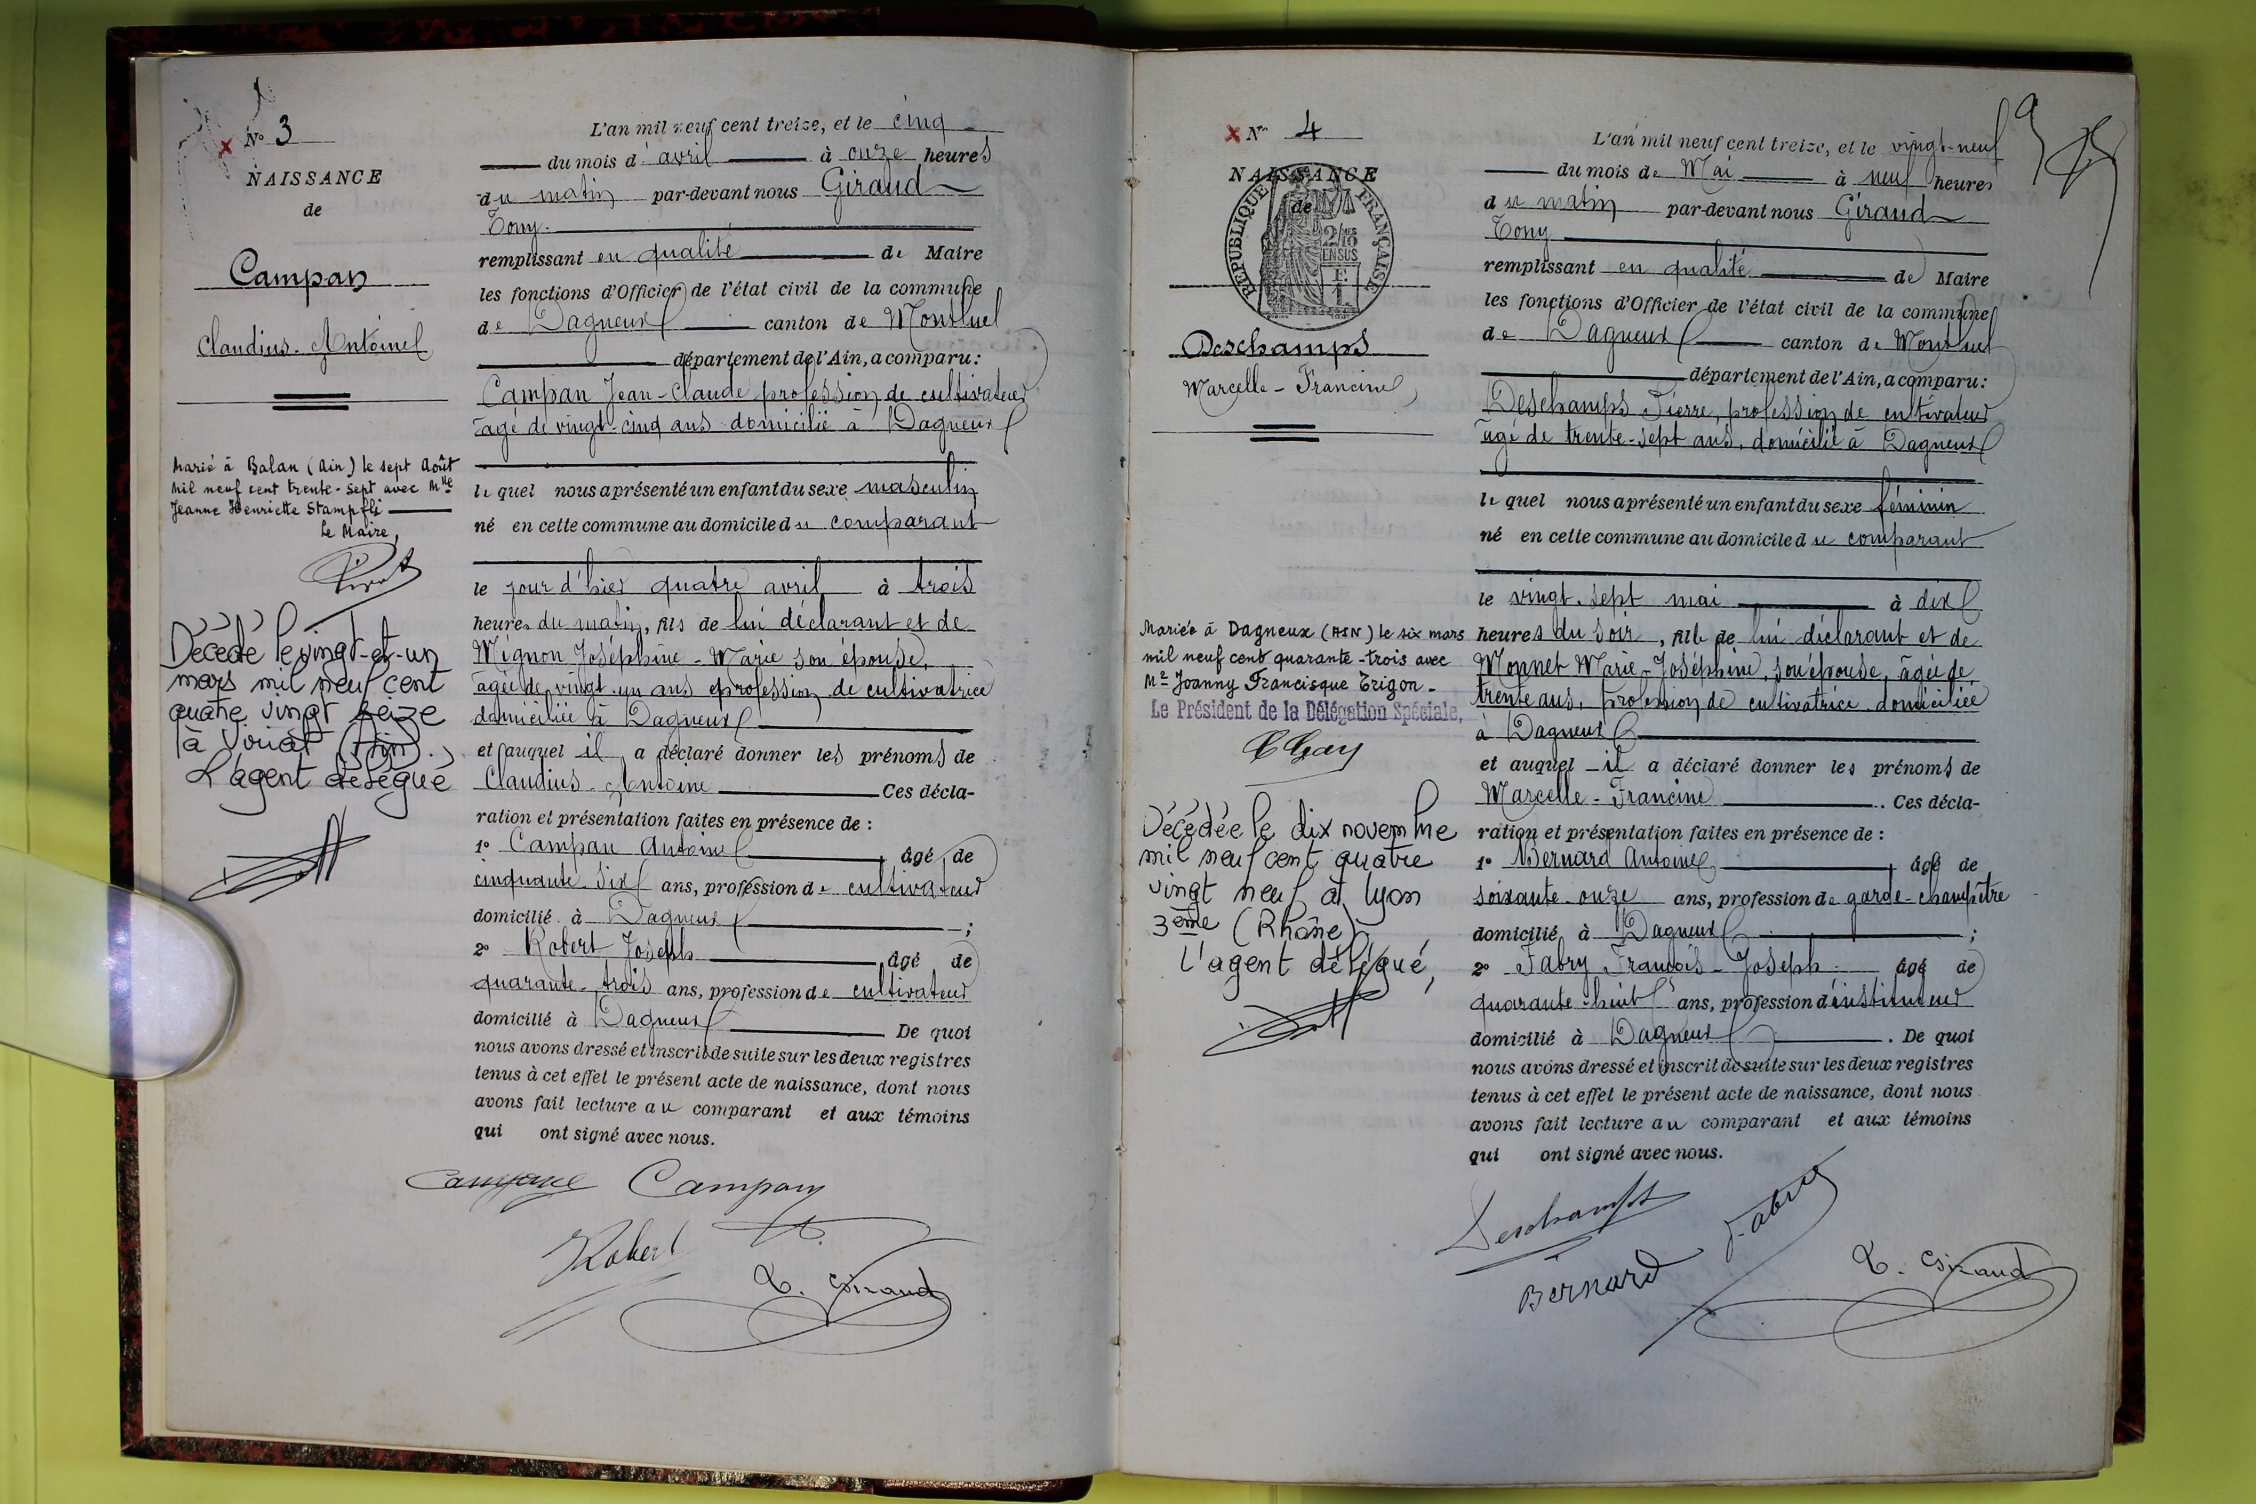 N° 3
NAISSANCE
de
Campan
Claudius-Antoine
Marié à Balan (Ain) le sept Août
mil neuf cent trente-sept avec Mlle
Jeanne Henriette Stampfli
Le Maire,
Décédé le vingt-et-un
mars mil neuf cent
quatre vingt seize
à Viriat (Ain).
L'agent délégué
L'an mil neuf cent treize, et le cinq
du mois d'avril à onze heures
du matin par-devant nous Giraud
Tony.
remplissant en qualité de Maire
les fonctions d'Officier de l'état civil de la commune
de Dagneux canton de Montluel
département de l'Ain, a comparu :
Campan Jean-Claude profession de cultivateur
âgé de vingt-cinq ans domicilié à Dagneux
lequel nous a présenté un enfant du sexe masculin
né en cette commune au domicile du comparant
le jour d'hier quatre avril à trois
heures du matin, fils de lui déclarant et de
Mignon Joséphine-Marie son épouse,
âgée de vingt-un ans profession de cultivatrice
domiciliée à Dagneux
et auquel il a déclaré donner les prénoms de
Claudius-Antoine Ces décla-
ration et présentation faites en présence de :
1° Campan Antoine, âgé de
cinquante-six ans, profession de cultivateur
domicilié à Dagneux ;
2° Robert Joseph âgé de
quarante-trois ans, profession de cultivateur
domicilié à Dagneux De quoi
nous avons dressé et inscrit de suite sur les deux registres
tenus à cet effet le présent acte de naissance, dont nous
avons fait lecture au comparant et aux témoins
qui ont signé avec nous.
Campan Campan
Robert
T. Giraud
N° 4
NAISSANCE
de
RÉPUBLIQUE FRANÇAISE
2/10
EN SUS
Deschamps
Marcelle-Francine
Mariée à Dagneux (AIN) le six mars
mil neuf cent quarante-trois avec
Mr Joanny Francisque Trigon.
Le Président de la Délégation Spéciale,
Décédée le dix novembre
mil neuf cent quatre
vingt neuf à Lyon
3ème (Rhône)
L'agent délégué,
L'an mil neuf cent treize, et le vingt-neuf
du mois de Mai à neuf heures
du matin par-devant nous Giraud
Tony
remplissant en qualité de Maire
les fonctions d'Officier de l'état civil de la commune
de Dagneux canton de Montluel
département de l'Ain, a comparu :
Deschamps Pierre, profession de cultivateur
âgé de trente-sept ans, domicilié à Dagneux
lequel nous a présenté un enfant du sexe féminin
né en cette commune au domicile du comparant
le vingt-sept mai à dix
heures du soir, fille de lui déclarant et de
Monnet Marie-Joséphine, son épouse, âgée de
trente ans, profession de cultivatrice domiciliée
à Dagneux
et auquel il a déclaré donner les prénoms de
Marcelle-Francine. Ces décla-
ration et présentation faites en présence de :
1° Bernard Antoine, âgé de
soixante-onze ans, profession de garde-champêtre
domicilié à Dagneux ;
2° Fabry François-Joseph âgé de
quarante-huit ans, profession d'instituteur
domicilié à Dagneux. De quoi
nous avons dressé et inscrit de suite sur les deux registres
tenus à cet effet le présent acte de naissance, dont nous
avons fait lecture au comparant et aux témoins
qui ont signé avec nous.
Deschamps
F. Fabry
Bernard
T. Giraud